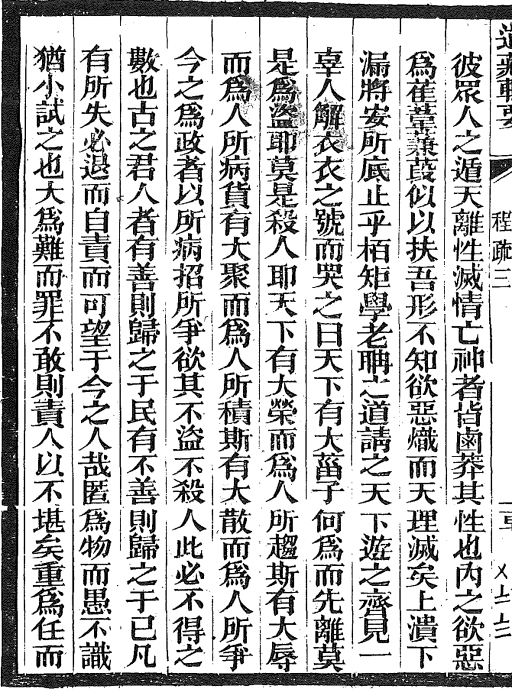 道藏輯要
程疏三
彼眾人之遁天離性滅情亡神者皆鹵莽其性也內之欲惡
為萑葦蒹葭似以扶吾形不知欲惡熾而天理滅矣上潰下
漏將安所底止乎栢矩學老聃之道請之天下遊之齊見一
辜人解衣衣之號而哭之曰天下有大菑子何為而先離莫
是為盜耶莫是殺人耶天下有大榮而為人所趨斯有大辱
而為人所病貨有大聚而為人所積斯有大散而為人所爭
今之為政者以所病招所爭欲其不盜不殺人此必不得之
數也古之君人者有善則歸之于民有不善則歸之于己凡
有所失必退而自責而可望于今之人哉匿為物而愚不識
猶小試之也大為難而罪不敢則責人以不堪矣重為任而